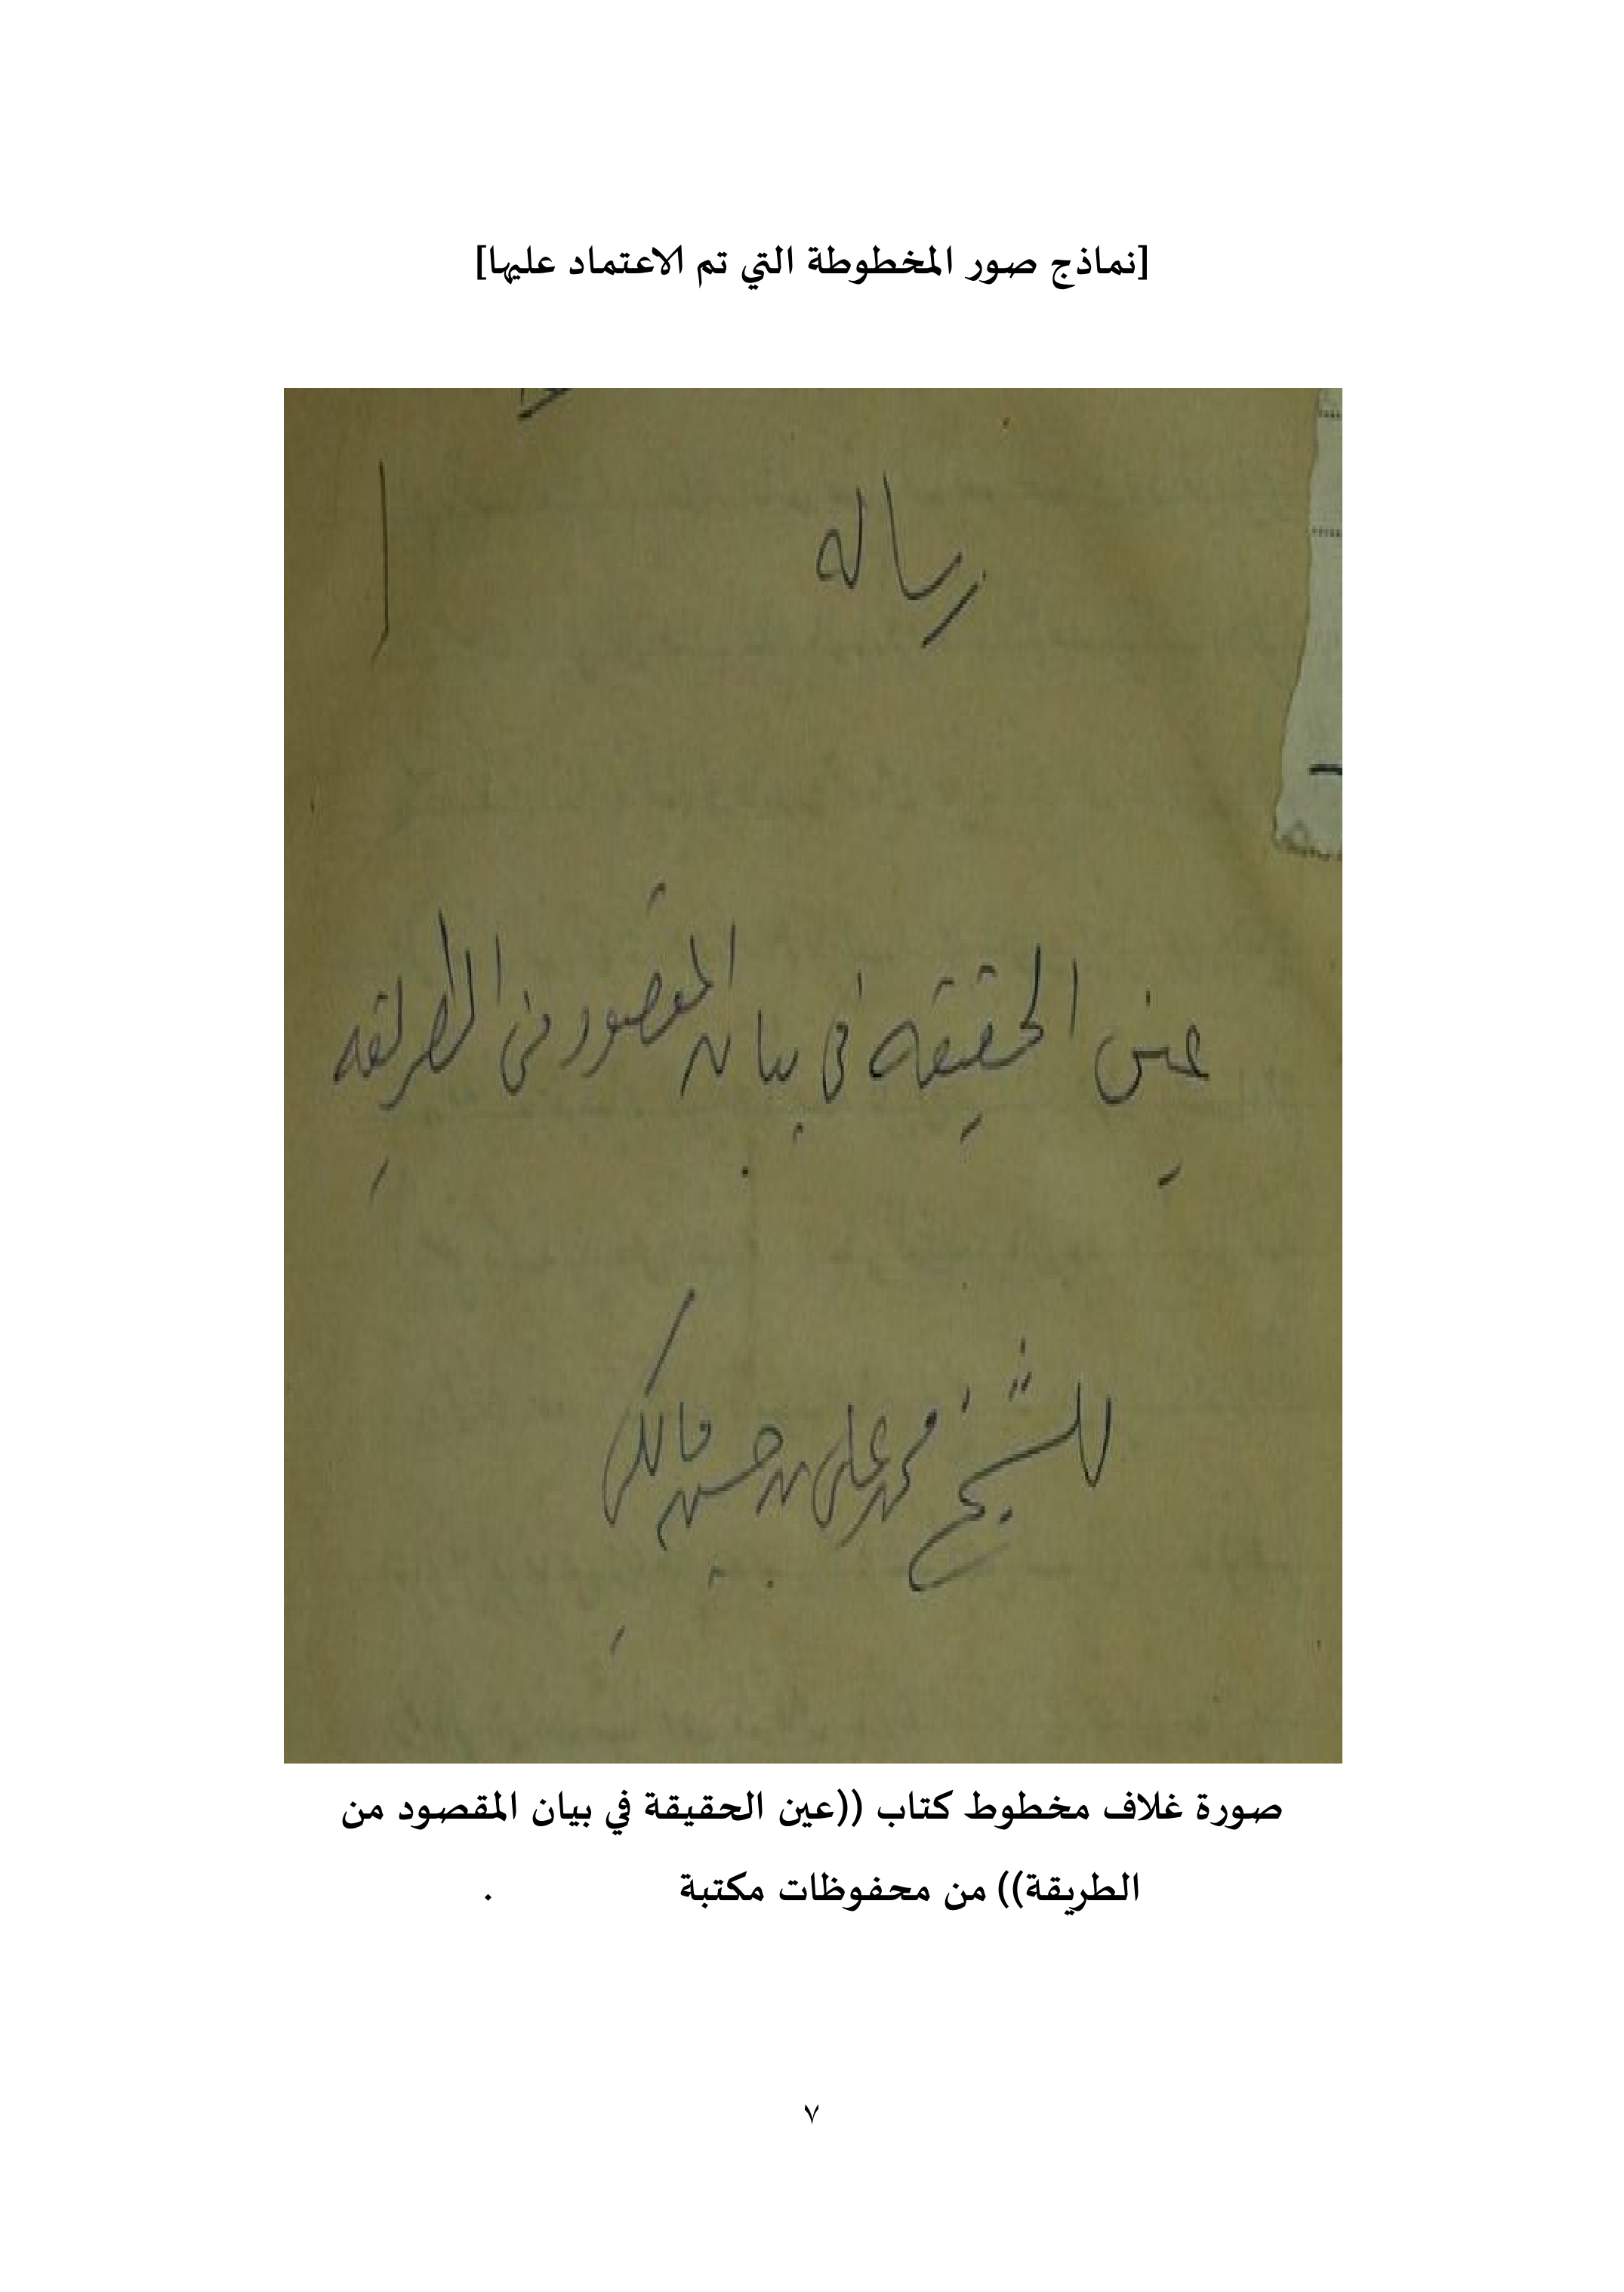 [نماذج صور المخطوطة التي تم الاعتماد عليها]
رساله
عين الحقيقه في بيان المقصود من الطريقه
للشيخ محمد علي بن حسين مالكي
صورة غلاف مخطوط كتاب ((عين الحقيقة في بيان المقصود من
الطريقة)) من محفوظات مكتبة .
٧